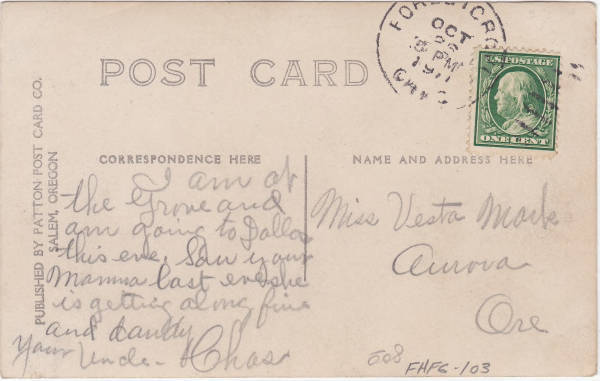 POST CARD
FOREST GRO
OCT
25
8 PM
1911
U.S. POSTAGE
ONE CENT
PUBLISHED BY PATTON POST CARD CO.
SALEM, OREGON
CORRESPONDENCE HERE
NAME AND ADDRESS HERE
I am at
the Grove and
am going to Dallas
this eve. Saw your
Mamma last eve she
is getting along fine
and dandy
Your Uncle - Chas
Miss Vesta Mark
Aurora
Ore
608
FHFG-103